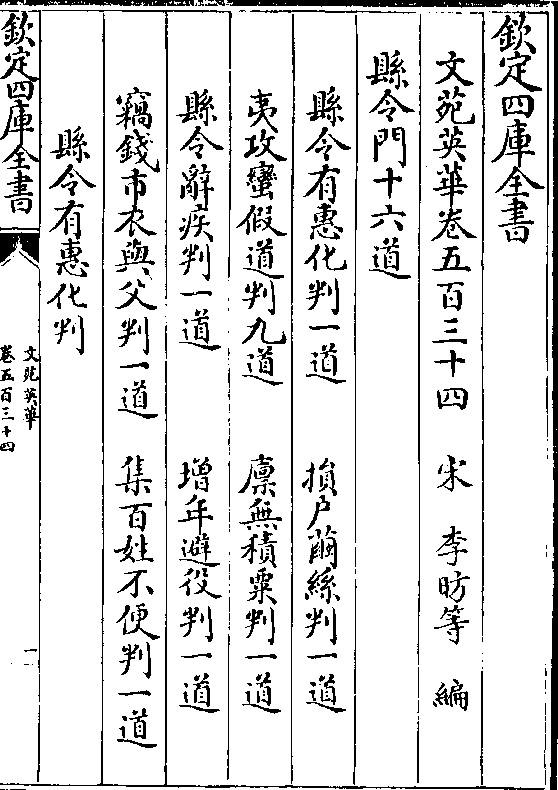 欽定四庫全書
文苑英華卷五百三十四 宋 李昉等 編
縣令門十六道
縣令有惠化判一道 損户繭絲判一道
夷攻蠻假道判九道 廪無積粟判一道
縣令辭疾判一道 增年避役判一道
竊錢市衣與父判一道 集百姓不便判一道
縣令有惠化判
欽定四庫全書
文苑英華
卷五百三十四
一